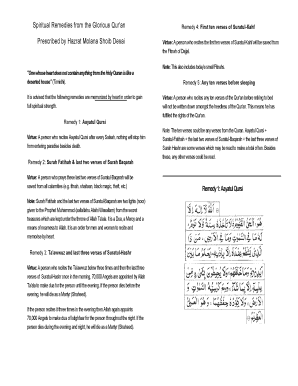 Spiritual Remedies from the Glorious Qur'an
Prescribed by Hazrat Molana Shoib Desai
"One whose heart does not contain anything from the Holy Quran is like a
deserted house" (Tirmidhi).
It is advised that the following remedies are memorized by heart in order to gain
full spiritual strength.
Remedy 1: Aayatul Qursi
Virtue: A person who recites Aayatul Qursi after every Salaah, nothing will stop him
from entering paradise besides death.
Remedy 2: Surah Fatihah & last two verses of Surah Baqarah
Virtue: A person who prays these last two verses of Suratul-Baqarah will be
saved from all calamities (e.g. fitnah, shaitaan, black magic, theft, etc.)
Note: Surah Fatihah and the last two verses of Suratul-Baqarah are two lights (noor)
given to the Prophet Muhammad (sallallahu Alaihi Wasallam) from the secret
treasures which are kept under the throne of Allah Ta'ala. It is a Dua, a Mercy and a
means of nearness to Allah. It is an order for men and women to recite and
memorise by heart.
Remedy 3: Ta'awwuz and last three verses of Suratul-Hashr
Virtue: A person who recites the Ta'awwuz below three times and then the last three
verses of Suratul-Hashr once in the morning, 70,000 Angels are appointed by Allah
Ta'ala to make dua for the person until the evening. If the person dies before the
evening, he will die as a Martyr (Shaheed).
If the person recites it three times in the evening then Allah again appoints
70,000 Angels to make dua of Istighfaar for the person throughout the night. If the
person dies during the evening and night, he will die as a Martyr (Shaheed).
Remedy 4: First ten verses of Suratul-Kahf
Virtue: A person who recites the first ten verses of Suratul-Kahf will be saved from
the Fitnah of Dajjal.
Note: This also includes today's small Fitnahs.
Remedy 5: Any ten verses before sleeping
Virtue: A person who recites any ten verses of the Qur'an before retiring to bed
will not be written down amongst the heedless of the Qur'an. This means he has
fulfilled the rights of the Qur'an.
Note: The ten verses could be any verses from the Quran. Aayatul Qursi +
Surah Fatihah + the last two verses of Suratul-Baqarah + the last three verses of
Surah Hashr are some verses which may be read to make a total of ten. Besides
these, any other verses could be read.
Remedy 1: Aayatul Qursi
اَللّٰهُ لَآ اِلٰهَ اِلَّا
هُوَ الْحَيُّ الْقَيُّوْمُ لَا تَاْخُذُهٗ سِنَةٌ وَّلَا نَوْمٌ
لَهٗ مَا فِي السَّمٰوٰتِ وَمَا فِي الْاَرْضِ مَنْ ذَا
الَّذِيْ يَشْفَعُ عِنْدَهٗٓ اِلَّا بِاِذْنِهٖ يَعْلَمُ مَا بَيْنَ
اَيْدِيْهِمْ وَمَا خَلْفَهُمْ وَلَا يُحِيْطُوْنَ بِشَيْءٍ
مِّنْ عِلْمِهٖٓ اِلَّا بِمَا شَآءَ وَسِعَ كُرْسِيُّهُ السَّمٰوٰتِ وَ
الْاَرْضَ وَلَا يَـُٔوْدُهٗ حِفْظُهُمَا وَهُوَ الْعَلِيُّ
الْعَظِيْمُ